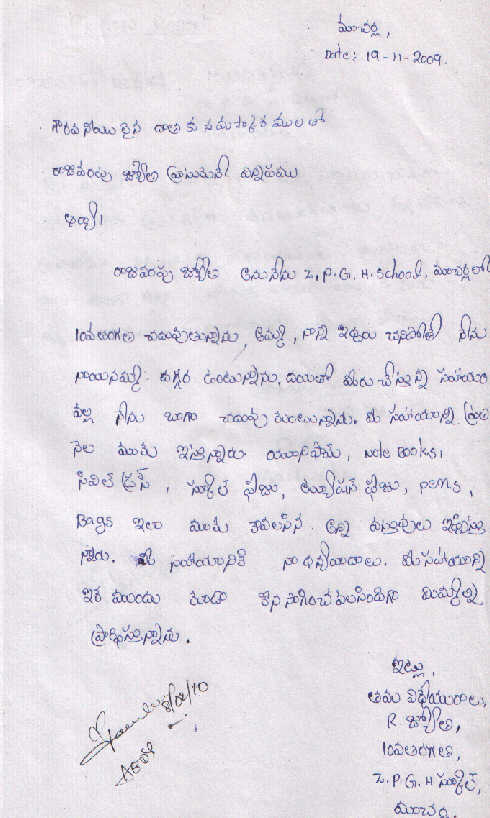 మాచర్ల,
Date: 19-11-2009.
గౌరవనీయులైన దాతకు నమస్కారములతో
రాజవరపు జ్యోతి వ్రాయునది విన్నపము
అర్యా!
రాజవరపు జ్యోతి అను నేను Z.P.G.H.School, మాచర్లలో
10వతరగతి చదువుతున్నాను, అమ్మ, నాన్న ఇద్దరు చనిపోతే నేను
నాయనమ్మ దగ్గర ఉంటున్నాను, దయతో మీరు చేస్తున్న సహాయం
వల్ల నేను బాగా చదువుకుంటున్నాను. మీ సహాయాన్ని ప్రతి
నెల మాకు ఇస్తున్నారు యూనిఫామ్, Note Books,
సివిల్ డ్రస్, స్కూల్ ఫీజు, ట్యూషన్ ఫీజు, pens,
Bags ఇలా మాకు కావలసిన అన్ని వస్తువులు ఇస్తు
న్నారు. మీ సహాయానికి నా ధన్యవాదాలు. మీ సహాయాన్ని
ఇక ముందు కూడా కొనసాగించవలసిందిగా మిమ్మల్ని
ప్రార్థిస్తున్నాను.
ఇట్లు,
తమ విధేయురాలు,
R జ్యోతి,
10వతరగతి,
Z.P.G.H స్కూల్,
మాచర్ల.
8/02/10